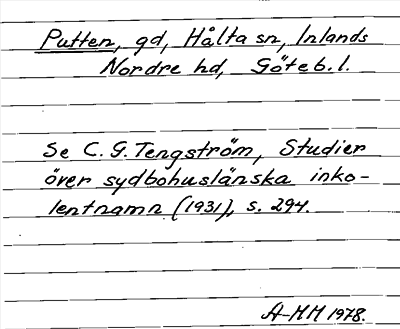 Putten, gd, Hålta sn, Inlands
Nordre hd, Göteb. l.
Se C. G. Tengström, Studier
över sydbohuslänska inko-
lentnamn (1931), s. 294.
A-MH 1978.